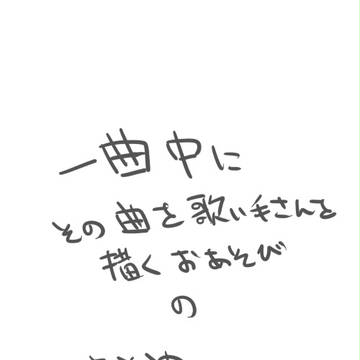 一曲中に
その曲を歌い手さんを
描くおあそび
の